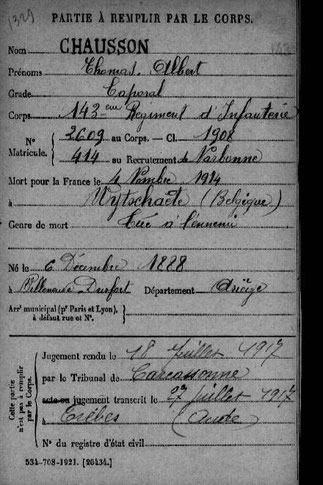 PARTIE À REMPLIR PAR LE CORPS.
Nom CHAUSSON
Prénoms Thomas Albert
Grade Caporal
Corps 143ème Régiment d'Infanterie
N° Matricule. 3609 au Corps. — Cl. 1908
414 au Recrutement de Narbonne
Mort pour la France le 4 9bre 1914
à Wytschaëte (Belgique)
Genre de mort Tué à l'ennemi
Né le 6 Décembre 1888
à Villeneuve Durfort Département Ariège
Arrt municipal (pr Paris et Lyon), à défaut rue et N°.
Cette partie n'est pas à remplir par le Corps.
Jugement rendu le 18 Juillet 1917
par le Tribunal de Carcassonne
acte ou jugement transcrit le 27 Juillet 1917
à Trèbes (Aude)
N° du registre d'état civil
534-708-1921. [26434.]